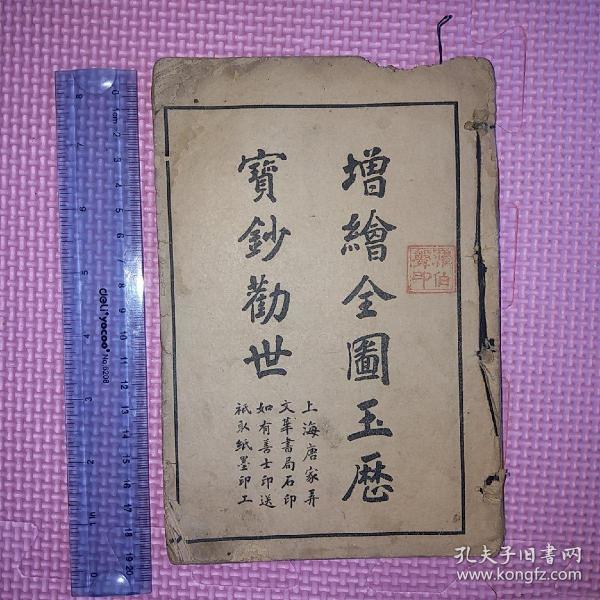 增繪全圖玉歷
寶鈔勸世
上海唐家弄
文華書局石印
如有善士印送
祇取紙墨印工
deli yocoo No.6208
0 1cm 2 3 4 5 6 7 8 9 10 11 12 13 14 15 16 17 18 19 20
孔夫子旧书网
www.kongfz.com